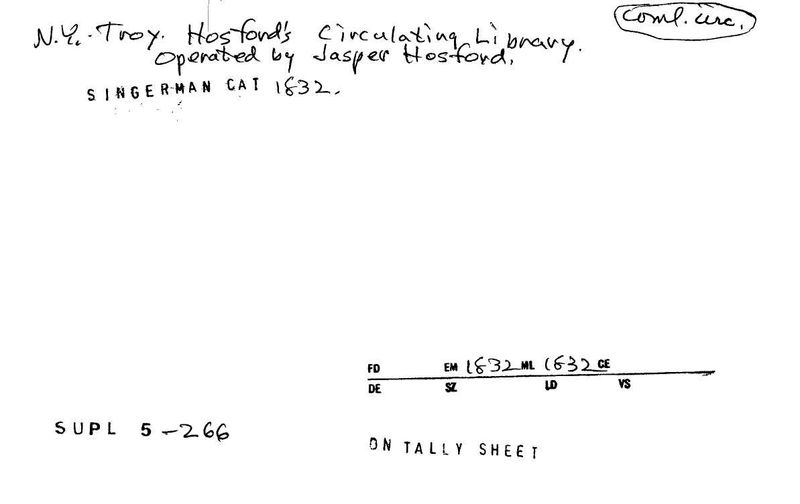 N.Y.-Troy. Hosford's Circulating Library.
Coml. circ.
Operated by Jasper Hosford.
SINGERMAN CAT 1832.
FD EM 1832 ML 1832 CE
DE SZ LD VS
SUPL 5-266
ON TALLY SHEET